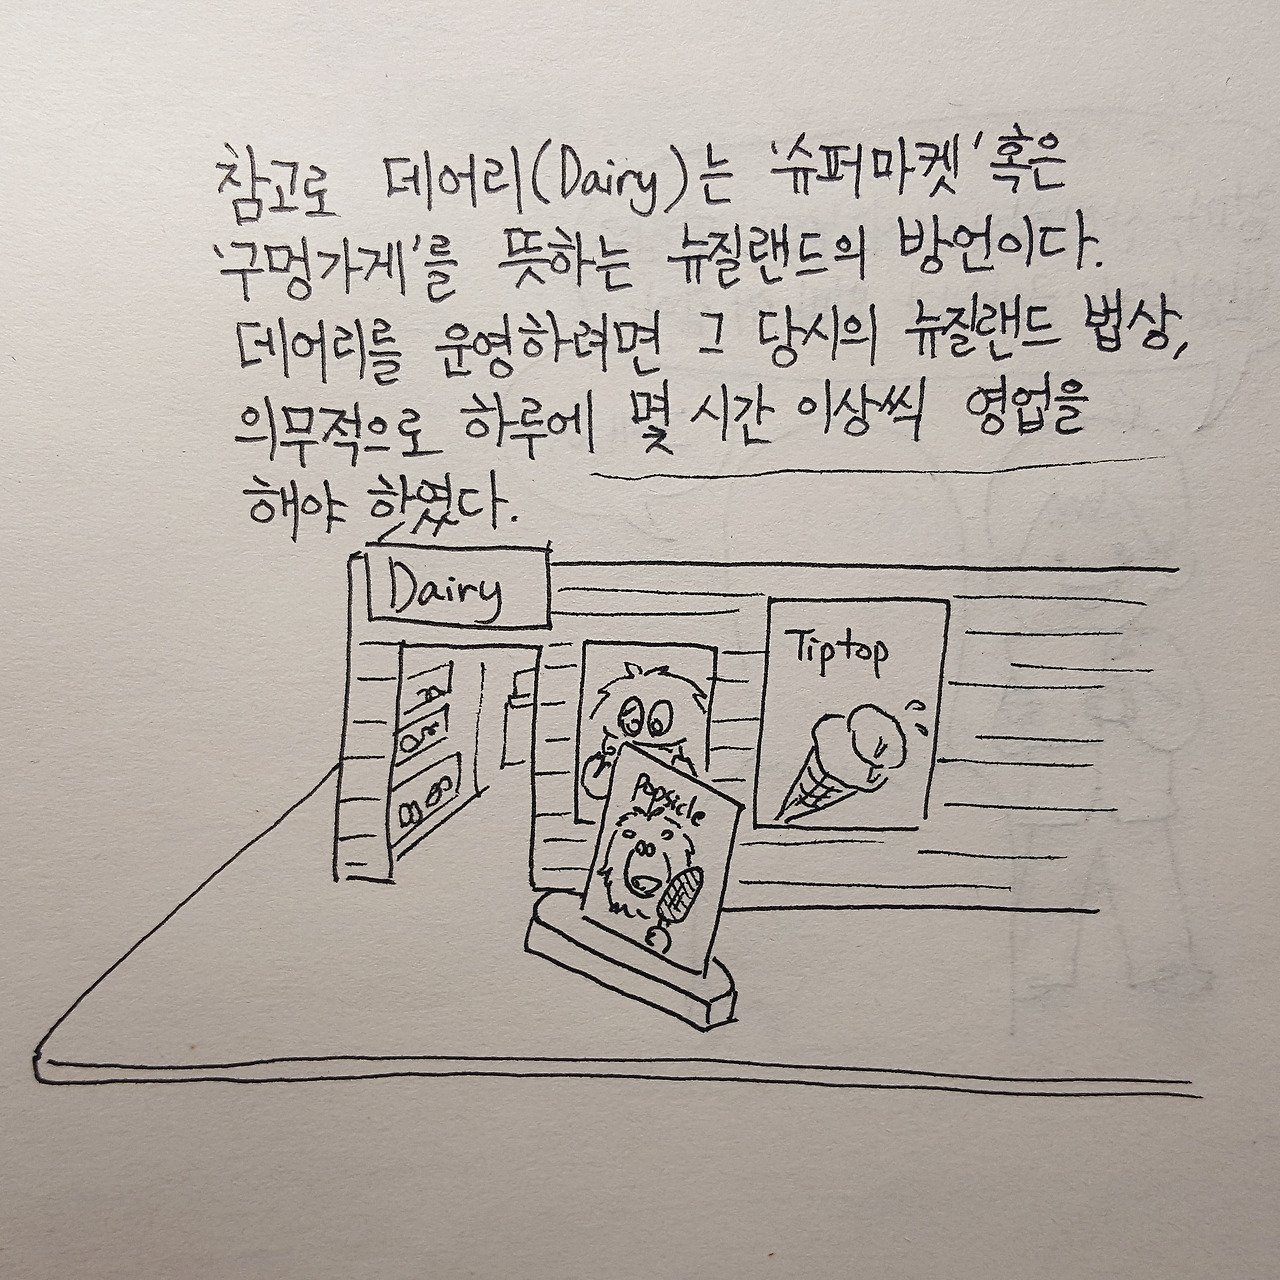 참고로 데어리(Dairy)는 '슈퍼마켓' 혹은
'구멍가게'를 뜻하는 뉴질랜드의 방언이다.
데어리를 운영하려면 그 당시의 뉴질랜드 법상,
의무적으로 하루에 몇 시간 이상씩 영업을
해야 핬었다.
Dairy
Tiptop
Popsicle